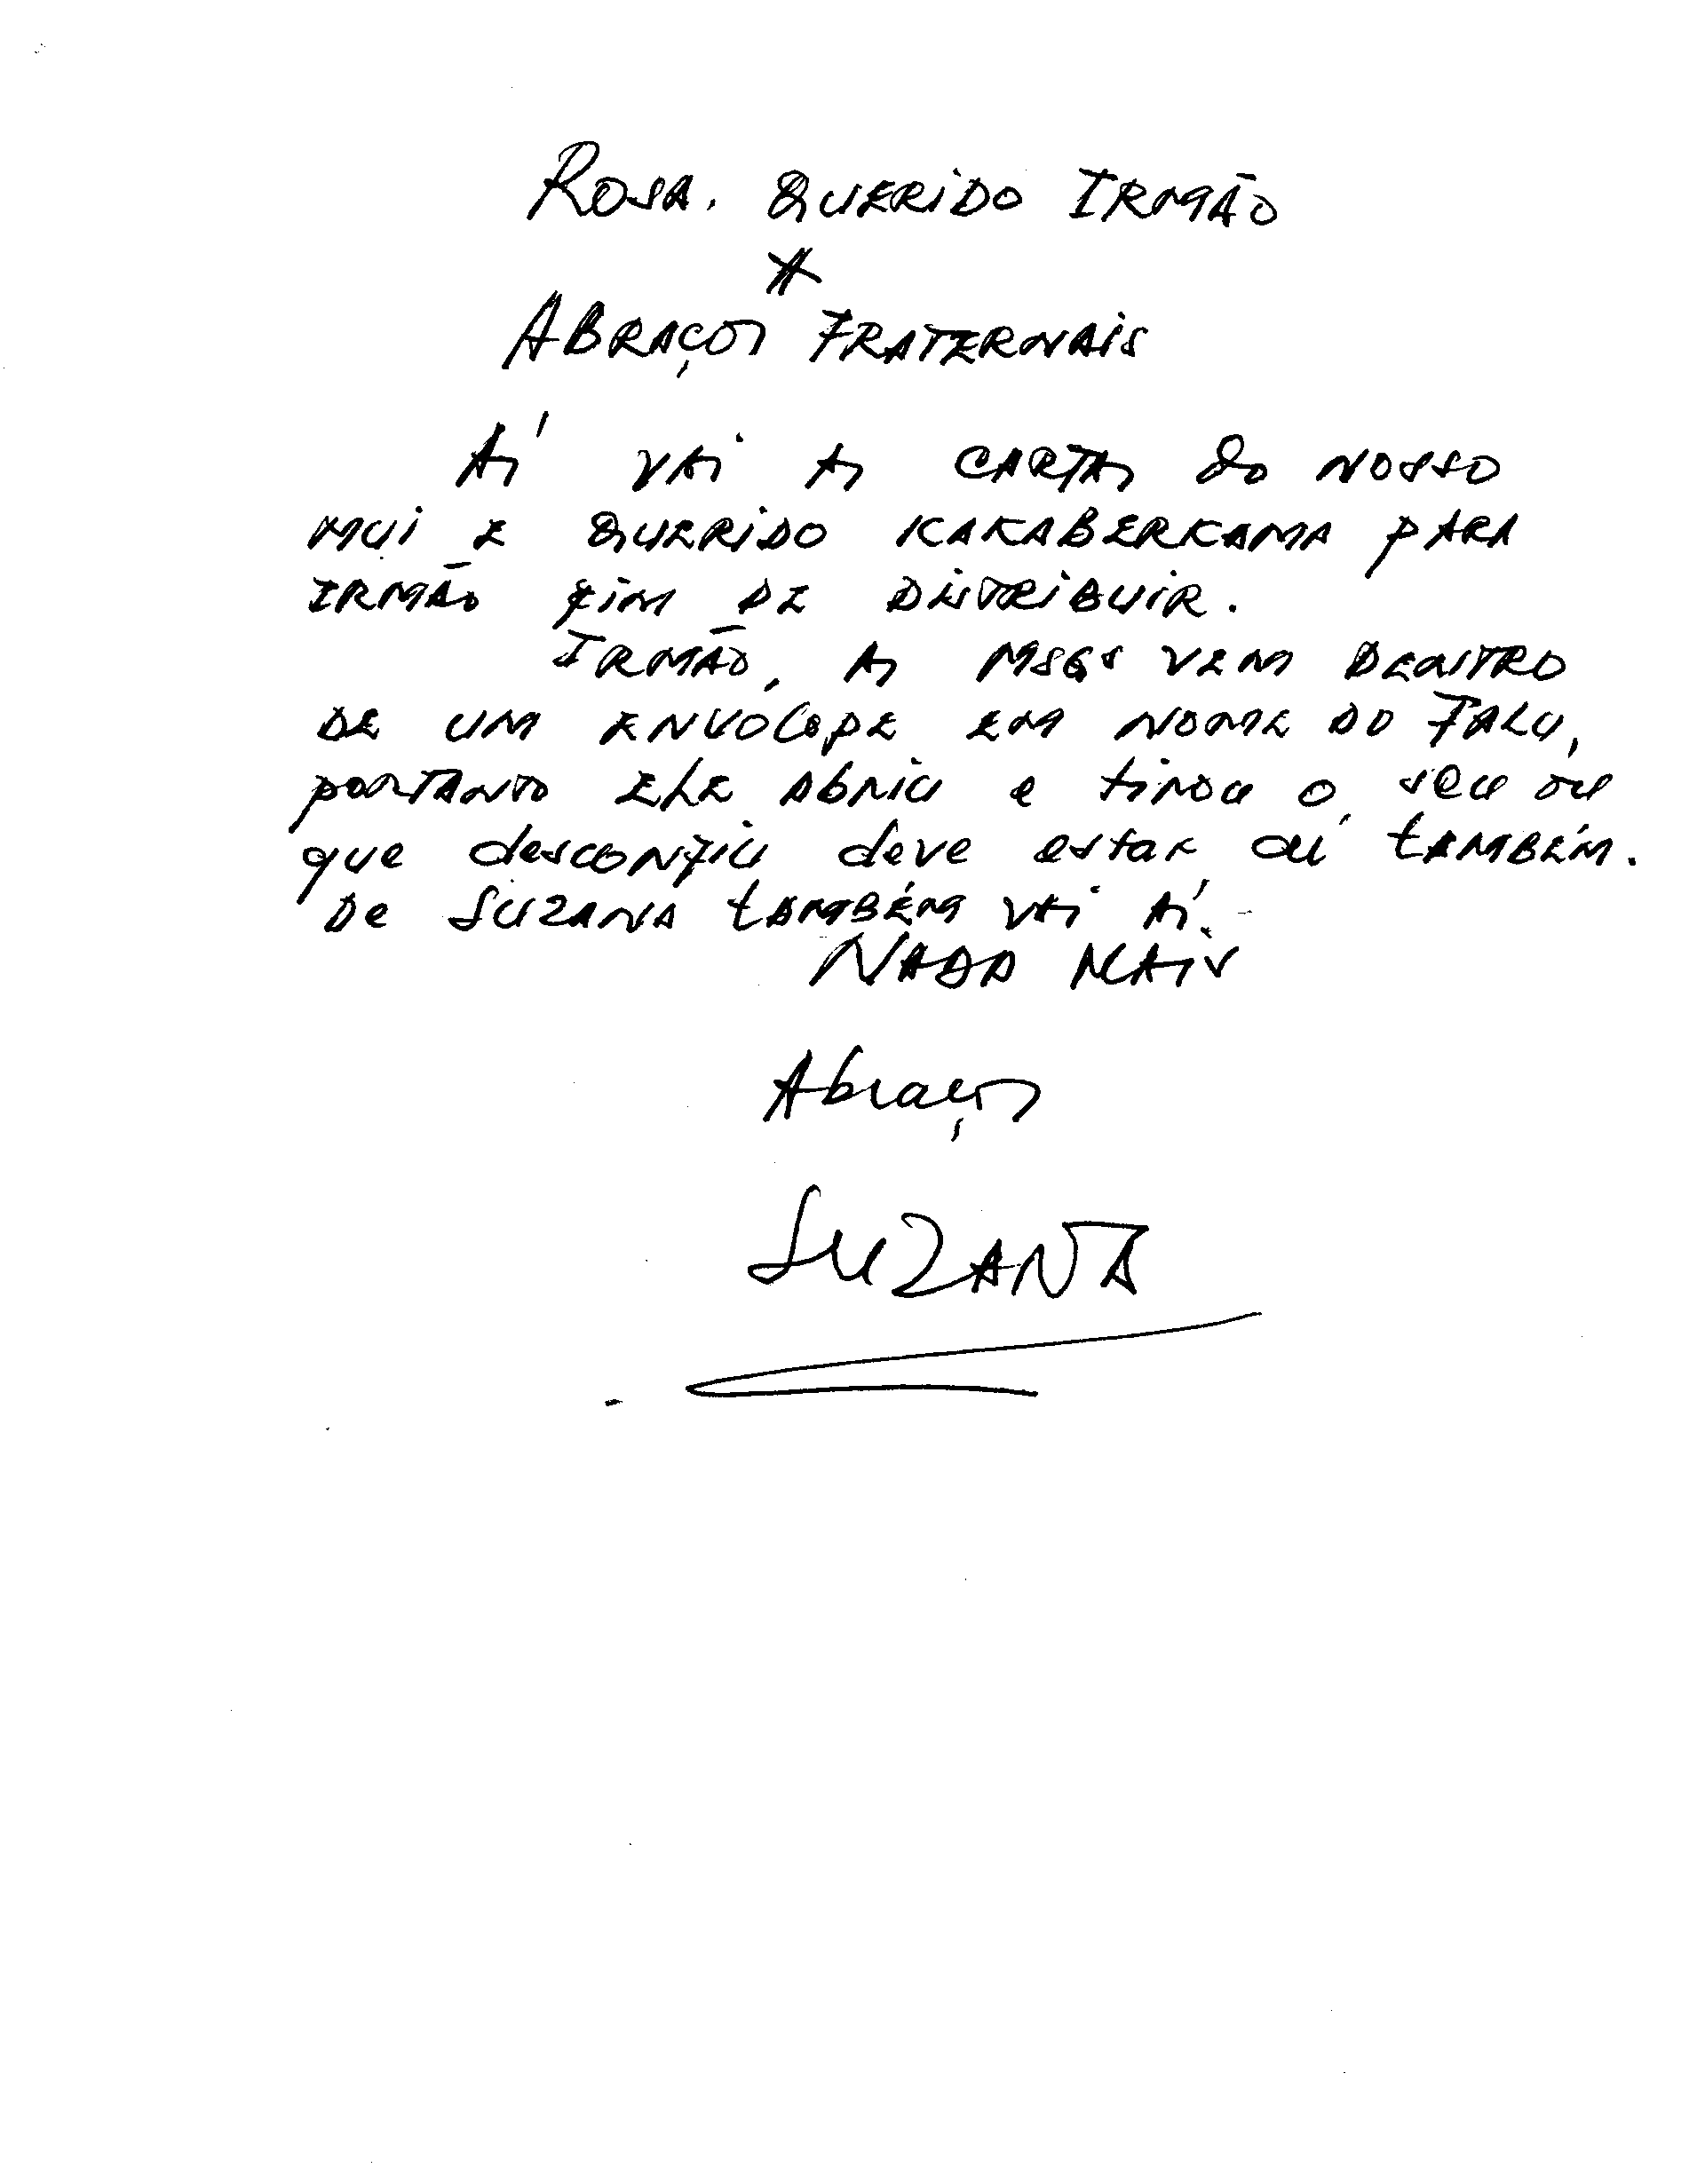 ROSA. QUERIDO IRMÃO
*
ABRAÇOS FRATERNAIS
AÍ VAI A CARTA do NOSSO
MUI E QUERIDO KAKABERKAMA PARA
IRMÃO FIM DE DISTRIBUIR.
IRMÃO, AS MSGS VEM DENTRO
DE UM ENVOLOPE EM NOME DO FALU,
PORTANTO ELE Abriu e tirou o seu
que desconfiu deve estar aí tAMBÉM.
De SUZANA tAMBÉM VAI AÍ.
NADA MAIS
Abraços
SUZANA